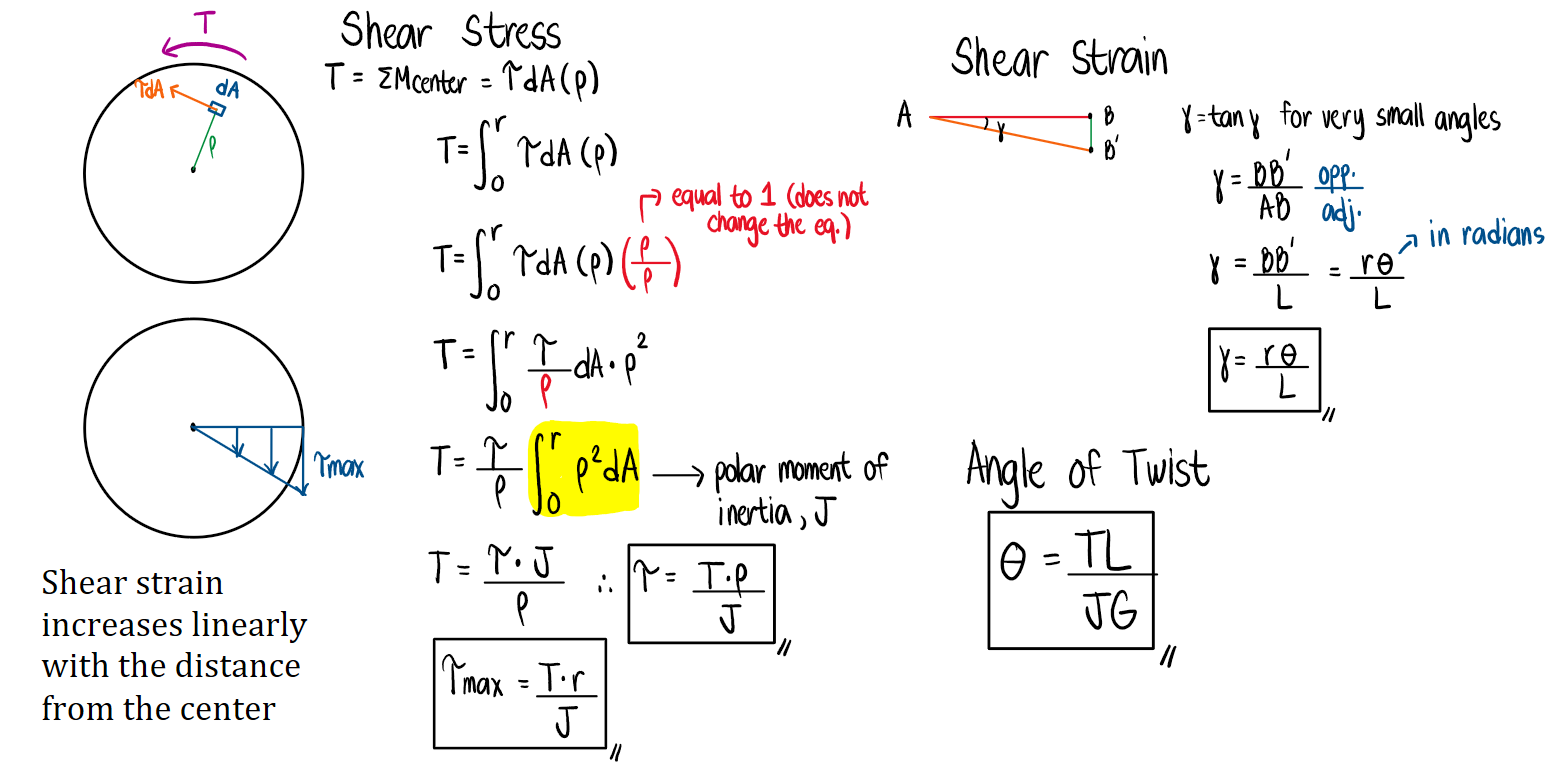 T
τdA
dA
ρ
τmax
Shear strain
increases linearly
with the distance
from the center
Shear Stress
T = ΣMcenter = τdA(ρ)
T=∫₀ʳ τdA (ρ)
→ equal to 1 (does not
change the eq.)
T=∫₀ʳ τdA (ρ) (ρ/ρ)
T=∫₀ʳ τ/ρ dA · ρ²
T= τ/ρ ∫₀ʳ ρ²dA → polar moment of
inertia, J
T = τ·J/ρ ∴ τ = T·ρ/J //
τmax = T·r/J //
Shear Strain
A
B
γ
B'
γ=tanγ for very small angles
γ = BB'/AB opp./adj.
→ in radians
γ = BB'/L = rθ/L
γ= rθ/L //
Angle of Twist
θ = TL/JG //